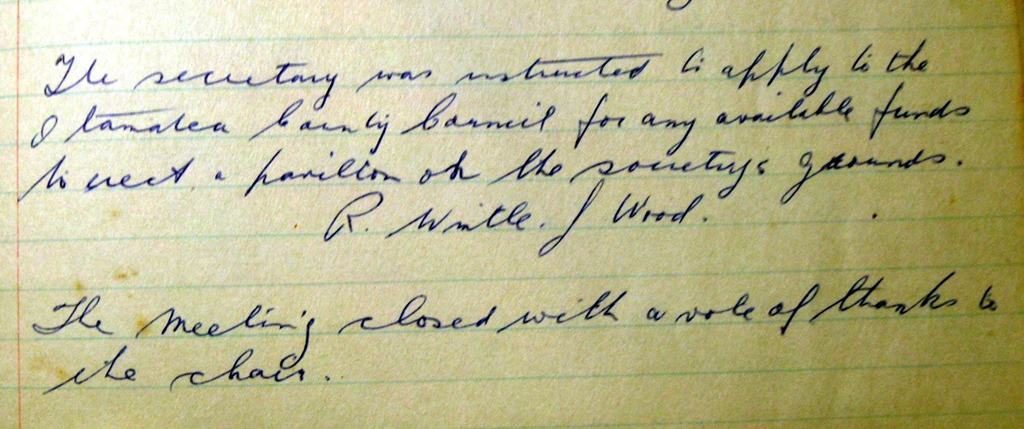 The secretary was instructed to apply to the
Otamatea County Council for any available funds
to erect a pavilion on the society's grounds.
R. Wintle. J Wood.
The meeting closed with a vote of thanks to
the chair.